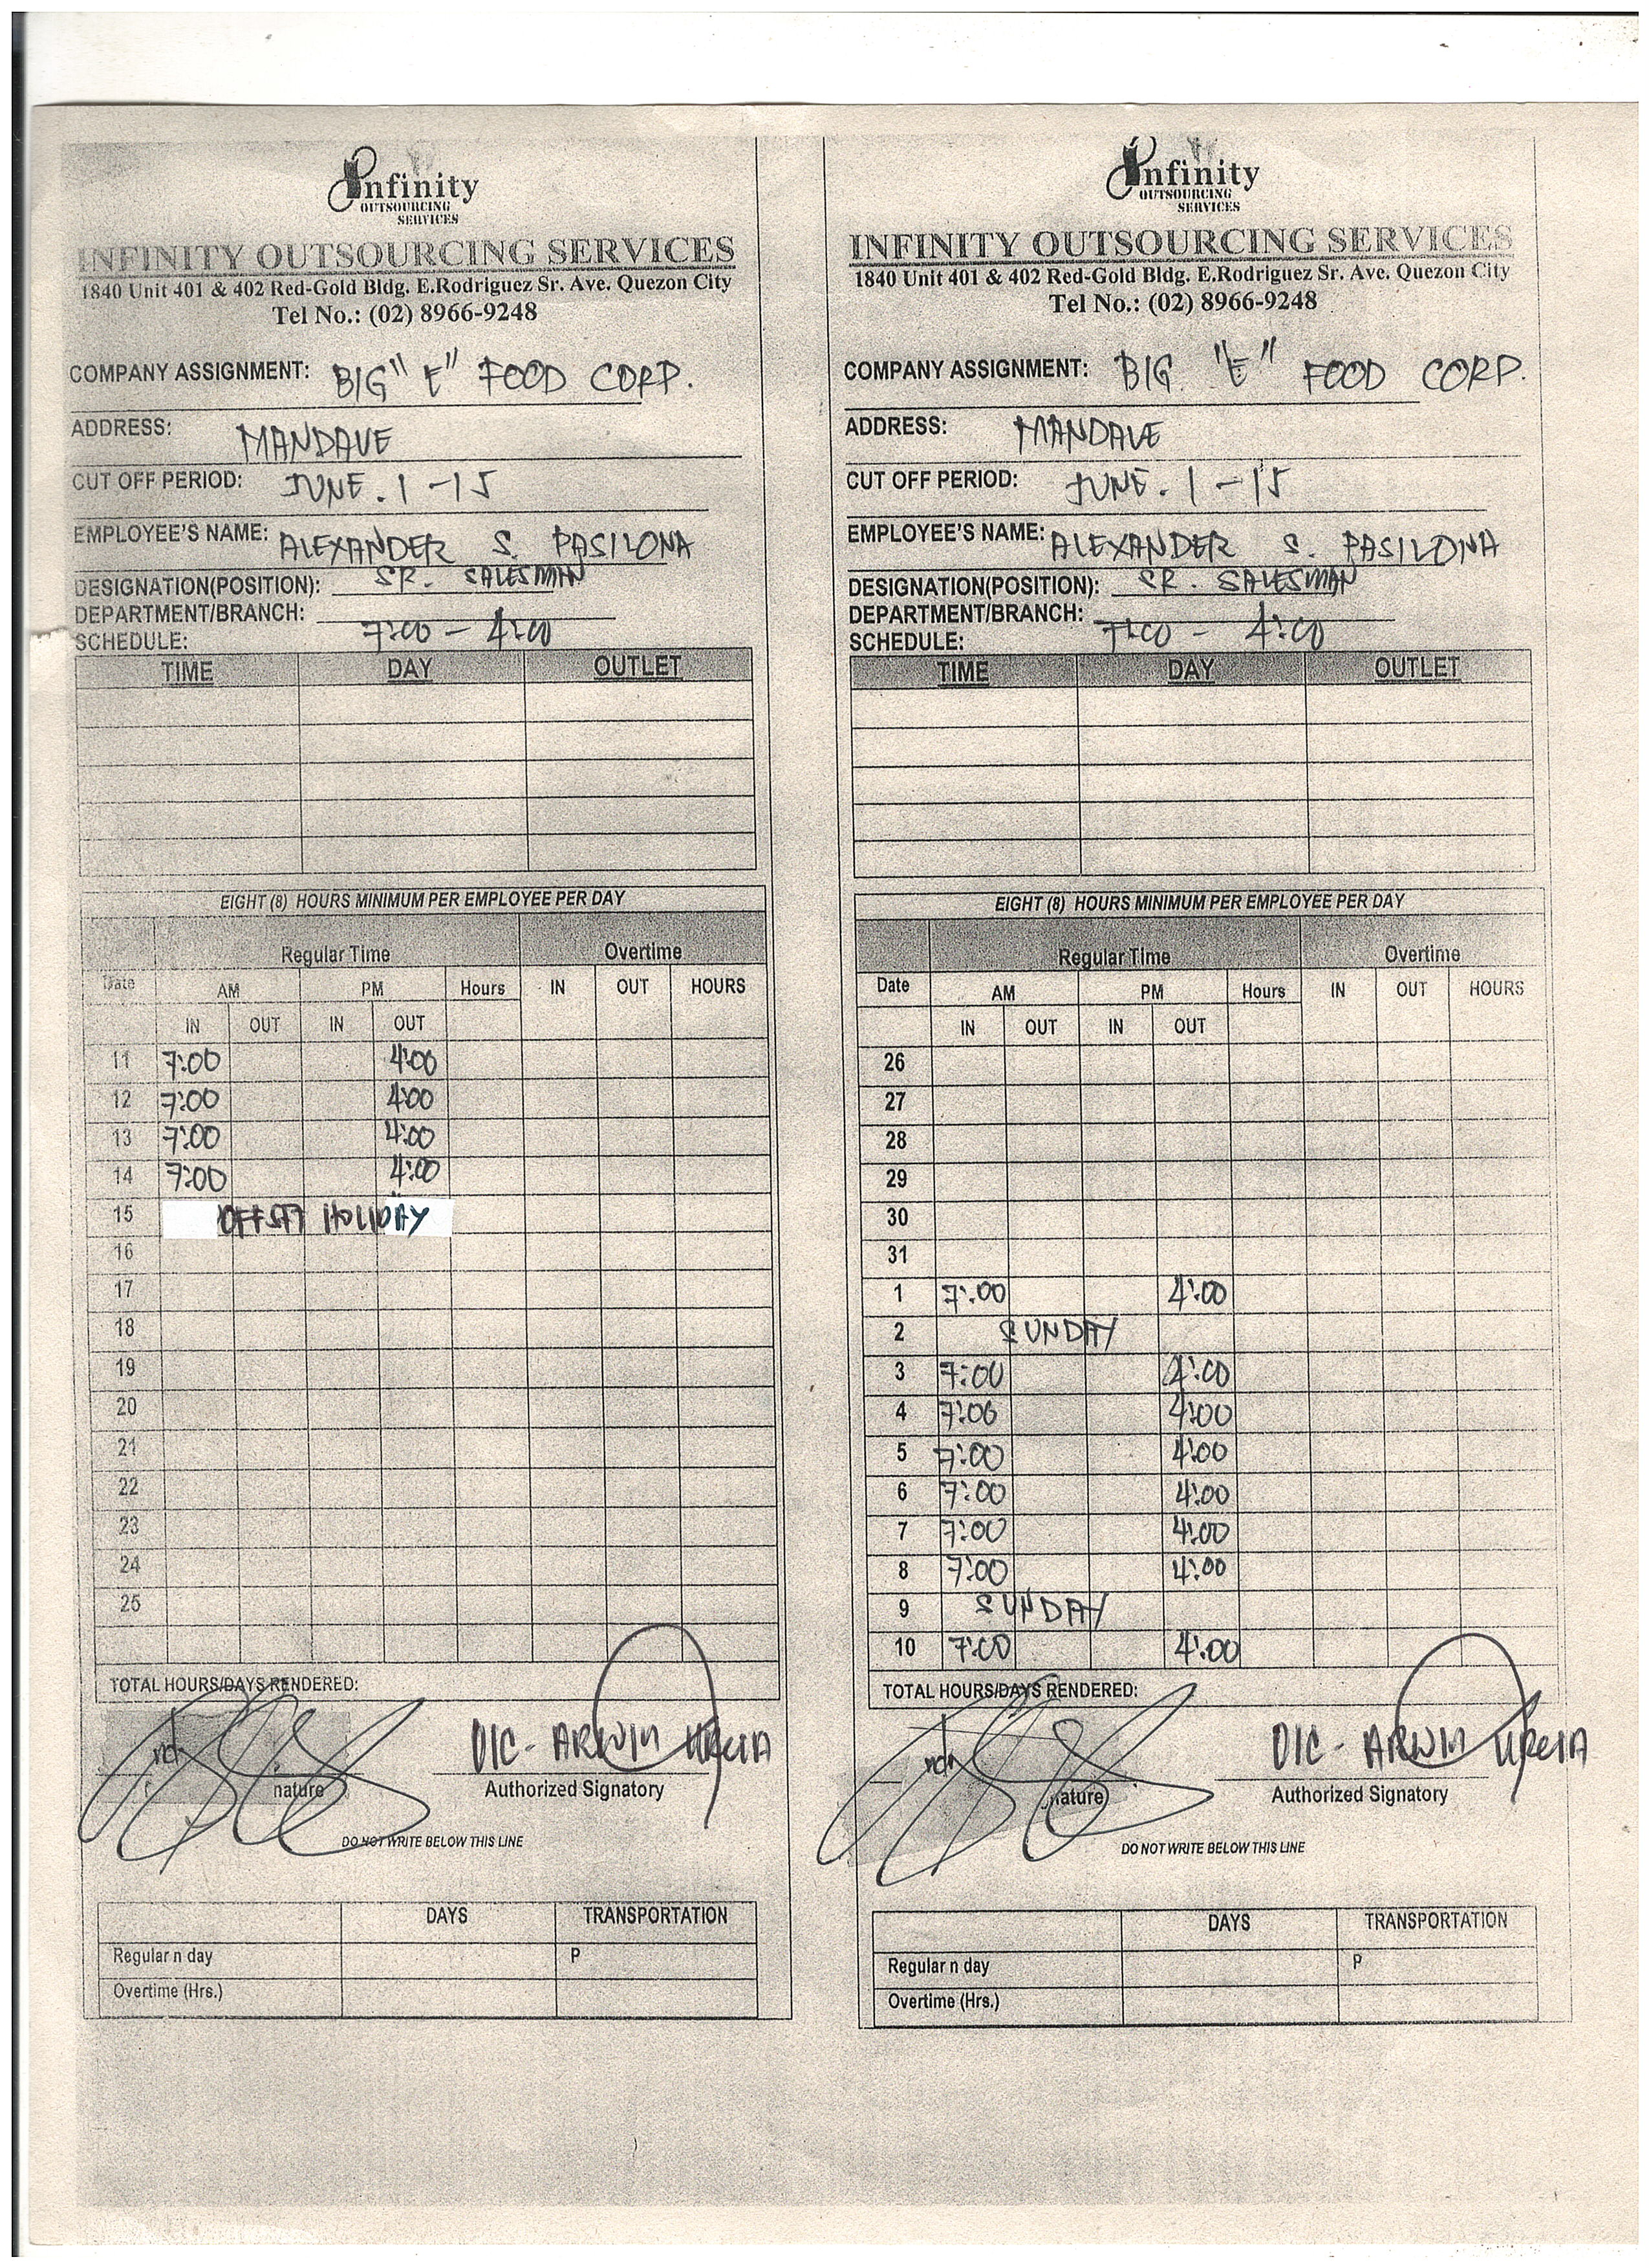 Infinity
OUTSOURCING
SERVICES
INFINITY OUTSOURCING SERVICES
1840 Unit 401 & 402 Red-Gold Bldg. E.Rodriguez Sr. Ave. Quezon City
Tel No.: (02) 8966-9248
COMPANY ASSIGNMENT: BIG "E" FOOD CORP.
ADDRESS: MANDAUE
CUT OFF PERIOD: JUNE. 1 - 15
EMPLOYEE'S NAME: ALEXANDER S. PASILONA
DESIGNATION(POSITION): SR. SALESMAN
DEPARTMENT/BRANCH:
SCHEDULE: 7:00 - 4:00
TIME DAY OUTLET
EIGHT (8) HOURS MINIMUM PER EMPLOYEE PER DAY
Regular Time Overtime
Date AM PM Hours IN OUT HOURS
IN OUT IN OUT
11 7:00 4:00
12 7:00 4:00
13 7:00 4:00
14 7:00 4:00
15 HOLIDAY
16
17
18
19
20
21
22
23
24
25
TOTAL HOURS/DAYS RENDERED:
OIC - ARWIN
nature Authorized Signatory
DO NOT WRITE BELOW THIS LINE
DAYS TRANSPORTATION
Regular n day P
Overtime (Hrs.)
Infinity
OUTSOURCING
SERVICES
INFINITY OUTSOURCING SERVICES
1840 Unit 401 & 402 Red-Gold Bldg. E.Rodriguez Sr. Ave. Quezon City
Tel No.: (02) 8966-9248
COMPANY ASSIGNMENT: BIG "E" FOOD CORP.
ADDRESS: MANDAUE
CUT OFF PERIOD: JUNE. 1 - 15
EMPLOYEE'S NAME: ALEXANDER S. PASILONA
DESIGNATION(POSITION): SR. SALESMAN
DEPARTMENT/BRANCH:
SCHEDULE: 7:00 - 4:00
TIME DAY OUTLET
EIGHT (8) HOURS MINIMUM PER EMPLOYEE PER DAY
Regular Time Overtime
Date AM PM Hours IN OUT HOURS
IN OUT IN OUT
26
27
28
29
30
31
1 7:00 4:00
2 SUNDAY
3 7:00 4:00
4 7:00 4:00
5 7:00 4:00
6 7:00 4:00
7 7:00 4:00
8 7:00 4:00
9 SUNDAY
10 7:00 4:00
TOTAL HOURS/DAYS RENDERED:
OIC - ARWIN
nature Authorized Signatory
DO NOT WRITE BELOW THIS LINE
DAYS TRANSPORTATION
Regular n day P
Overtime (Hrs.)